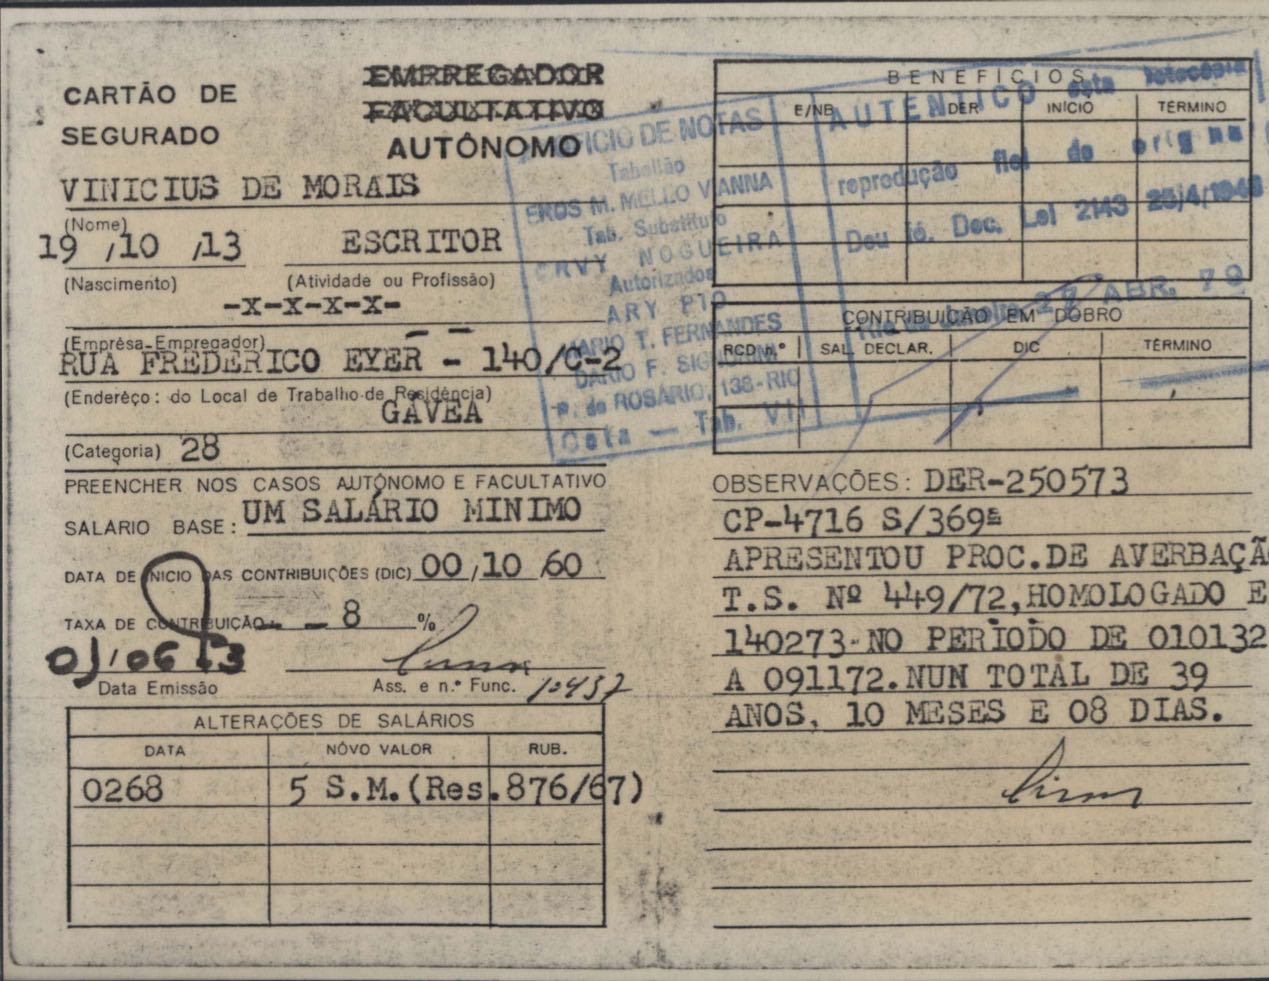 CARTÃO DE
SEGURADO
EMPREGADOR
FACULTATIVO
AUTÔNOMO
VINICIUS DE MORAIS
(Nome)
19 /10 /13 ESCRITOR
(Nascimento) (Atividade ou Profissão)
-X-X-X-X-
(Emprêsa-Empregador)
RUA FREDERICO EYER - 140/C-2
(Enderêço: do Local de Trabalho-de Residência)
GÁVEA
(Categoria) 28
PREENCHER NOS CASOS AUTÔNOMO E FACULTATIVO
SALÁRIO BASE: UM SALÁRIO MINIMO
DATA DE INICIO DAS CONTRIBUIÇÕES (DIC) 00 /10 /60
TAXA DE CONTRIBUIÇÃO - - 8 %
01/06 73
Data Emissão Ass. e n.º Func.
ALTERAÇÕES DE SALÁRIOS
DATA NÔVO VALOR RUB.
0268 5 S.M.(Res.876/67)
OFICIO DE NOTAS
Tabelião
EROS M. MELLO VIANNA
Tab. Substituto
NOGUEIRA
Autorizados
ARY
MARIO T. FERNANDES
DARIO F.
R. do ROSÁRIO, 138-RIO
Tab. VII
BENEFÍCIOS
E/NB DER INÍCIO TÉRMINO
AUTENTICO esta fotocópia
reprodução fiel do original
Dou fé. Dec. Lei 2148 25/4/1940
Rio de Janeiro 27 ABR. 79
CONTRIBUIÇÃO EM DOBRO
RCD n.º SAL. DECLAR. DIC TÉRMINO
OBSERVAÇÕES: DER-250573
CP-4716 S/369ª
APRESENTOU PROC.DE AVERBAÇÃO
T.S. Nº 449/72,HOMOLOGADO E
140273-NO PERÍODO DE 010132
A 091172.NUM TOTAL DE 39
ANOS, 10 MESES E 08 DIAS.